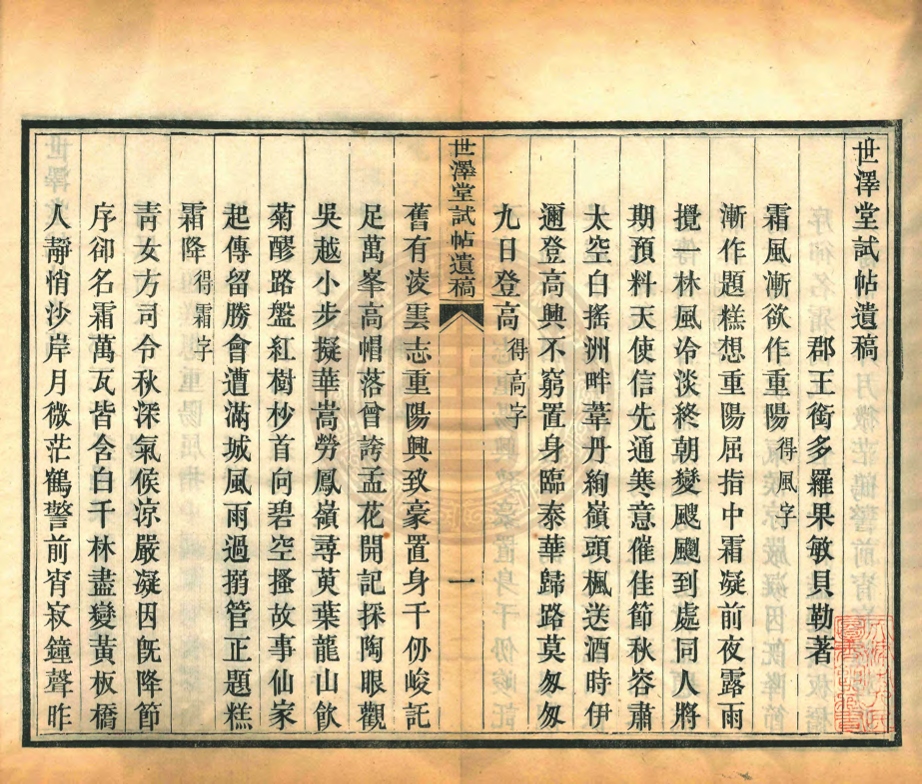 世澤堂試帖遺稿
郡王銜多羅果敏貝勒著
霜風漸欲作重陽得風字
漸作題糕想重陽屈指中霜凝前夜露雨
攪一林風冷淡終朝變颼飀到處同人將
期預料天使信先通寒意催佳節秋容肅
太空白搖洲畔葦丹絢嶺頭楓送酒時伊
邇登高興不窮置身臨泰華歸路莫匆匆
九日登高得高字
世澤堂試帖遺稿
一
舊有淩雲志重陽興致豪置身千仞峻託
足萬峯高帽落曾誇孟花開記探陶眼觀
吳越小步擬華嵩勞鳳嶺尋萸葉龍山飲
菊醪路盤紅樹杪首向碧空搔故事仙家
起傳留勝會遭滿城風雨過搦管正題糕
霜降得霜字
靑女方司令秋深氣候涼嚴凝因旣降節
序卻名霜萬瓦皆含白千林盡變黃板橋
人靜悄沙岸月微茫鶴警前宵寂鐘聲昨